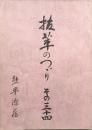 抜萃のつゞり
その三十四
熊平源蔵